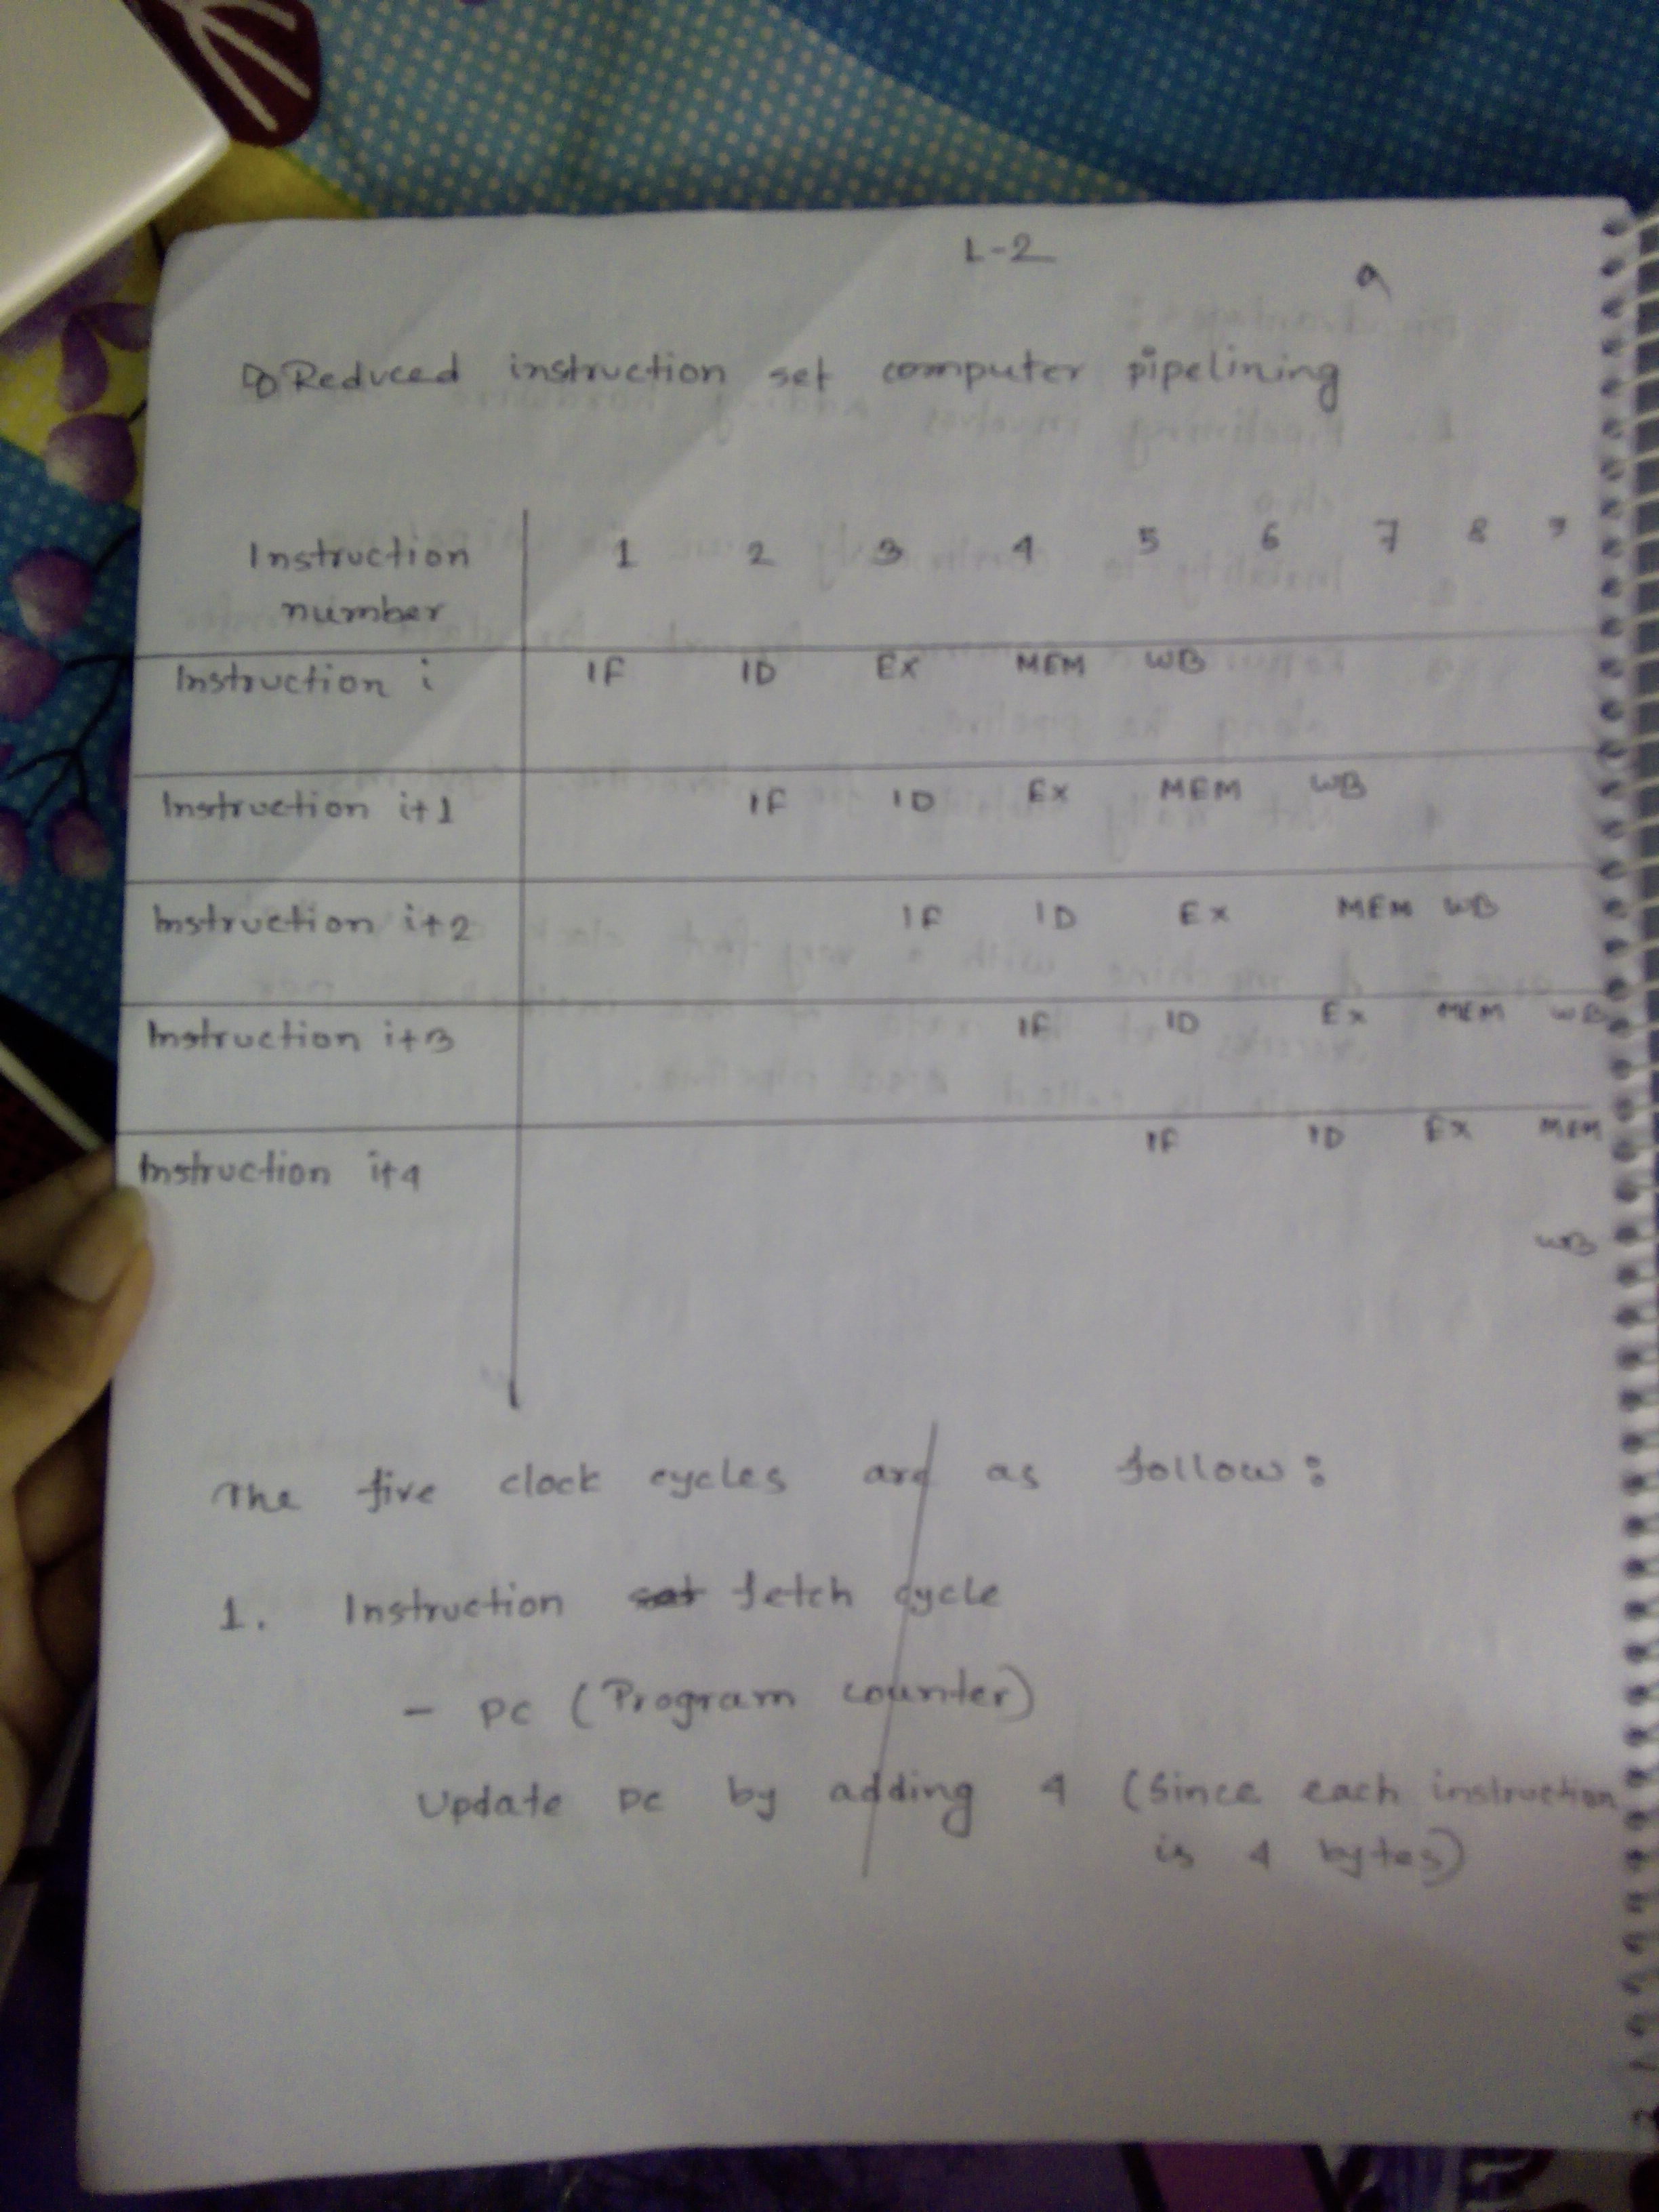 L-2
9
Reduced instruction set computer pipelining
Instruction number 1 2 3 4 5 6 7 8 9
Instruction i IF ID EX MEM WB
Instruction i+1 IF ID EX MEM WB
Instruction i+2 IF ID EX MEM WB
Instruction i+3 IF ID EX MEM WB
Instruction i+4 IF ID EX MEM
WB
The five clock cycles are as follow:
1. Instruction set fetch cycle
- PC (Program counter)
Update PC by adding 4 (Since each instruction
is 4 bytes)